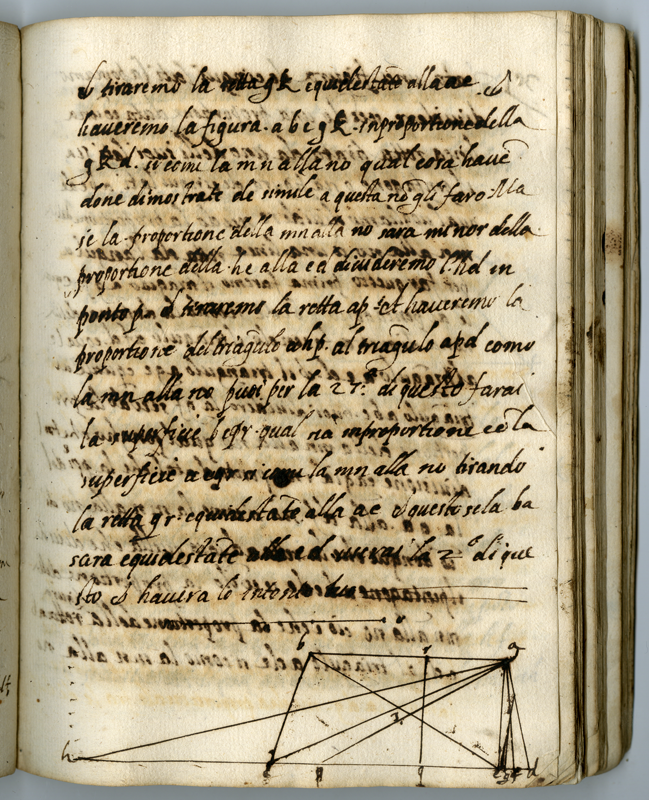 & tiraremo la retta g k equidestāte alla a e &
haveremo la figura . a b e g k . in proportione della
g k d . si come la m n alla n o qual cosa havē
done dimostrate de simile a questa nō gli faro Ma
se la proportione della m n alla n o sara minor della
proportione della h e alla e d divideremo l' h d in
ponto p & tiraremo la retta a p et haveremo la
proportione del triāgulo a h p . al triāgulo a p d como
la m n alla n o puoi per la 27ª di questo farai
la superficie b e q r qual sia in proportione cō la
superficie a e q r si como la m n alla n o tirando
la retta q r equidestāte alla a e & questo se la b a
sara equidestāte alla e d la 2ª di que
sto & havera lo intento
b r a
h p q d